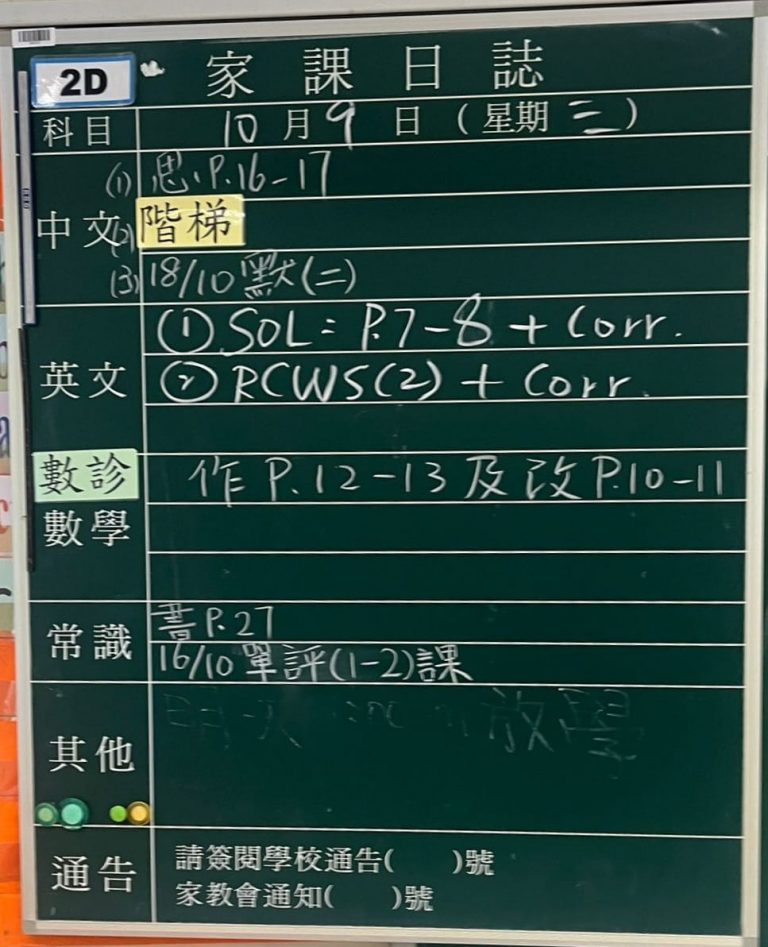 2D
家課日誌
科目 10月9日(星期三)
中文 (1) 思.P.16-17
(2) 階梯
(3) 18/10 默(二)
英文 ① SOL: P.7-8 + Corr.
② RCWS(2) + Corr.
數診 作 P.12-13 及改 P.10-11
數學
常識 書P.27
16/10 單評(1-2)課
其他 明天 放學
通告 請簽閱學校通告( )號
家教會通知( )號